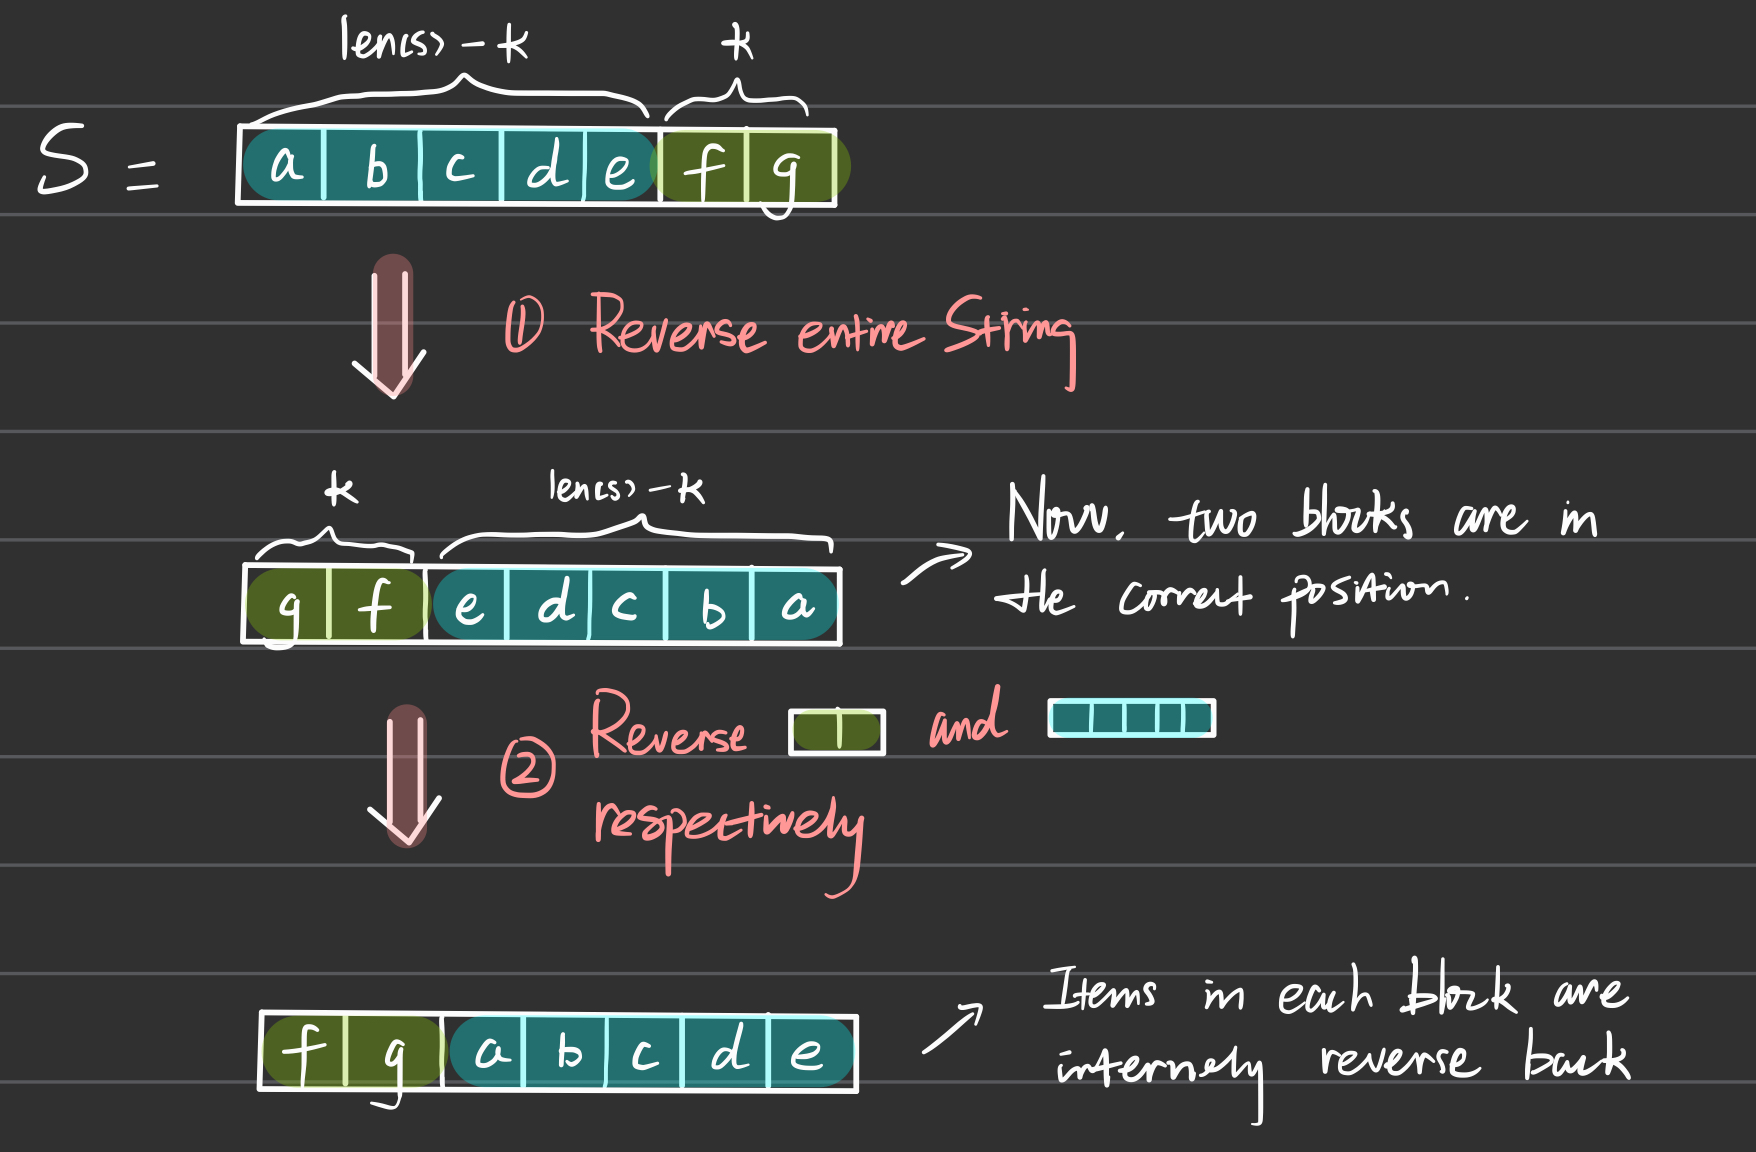 len(s) - k k
S = a b c d e f g
① Reverse entire String
k len(s) - k
Now. two blocks are in
the correct position.
g f e d c b a
② Reverse and
respectively
Items in each block are
internely reverse back
f g a b c d e